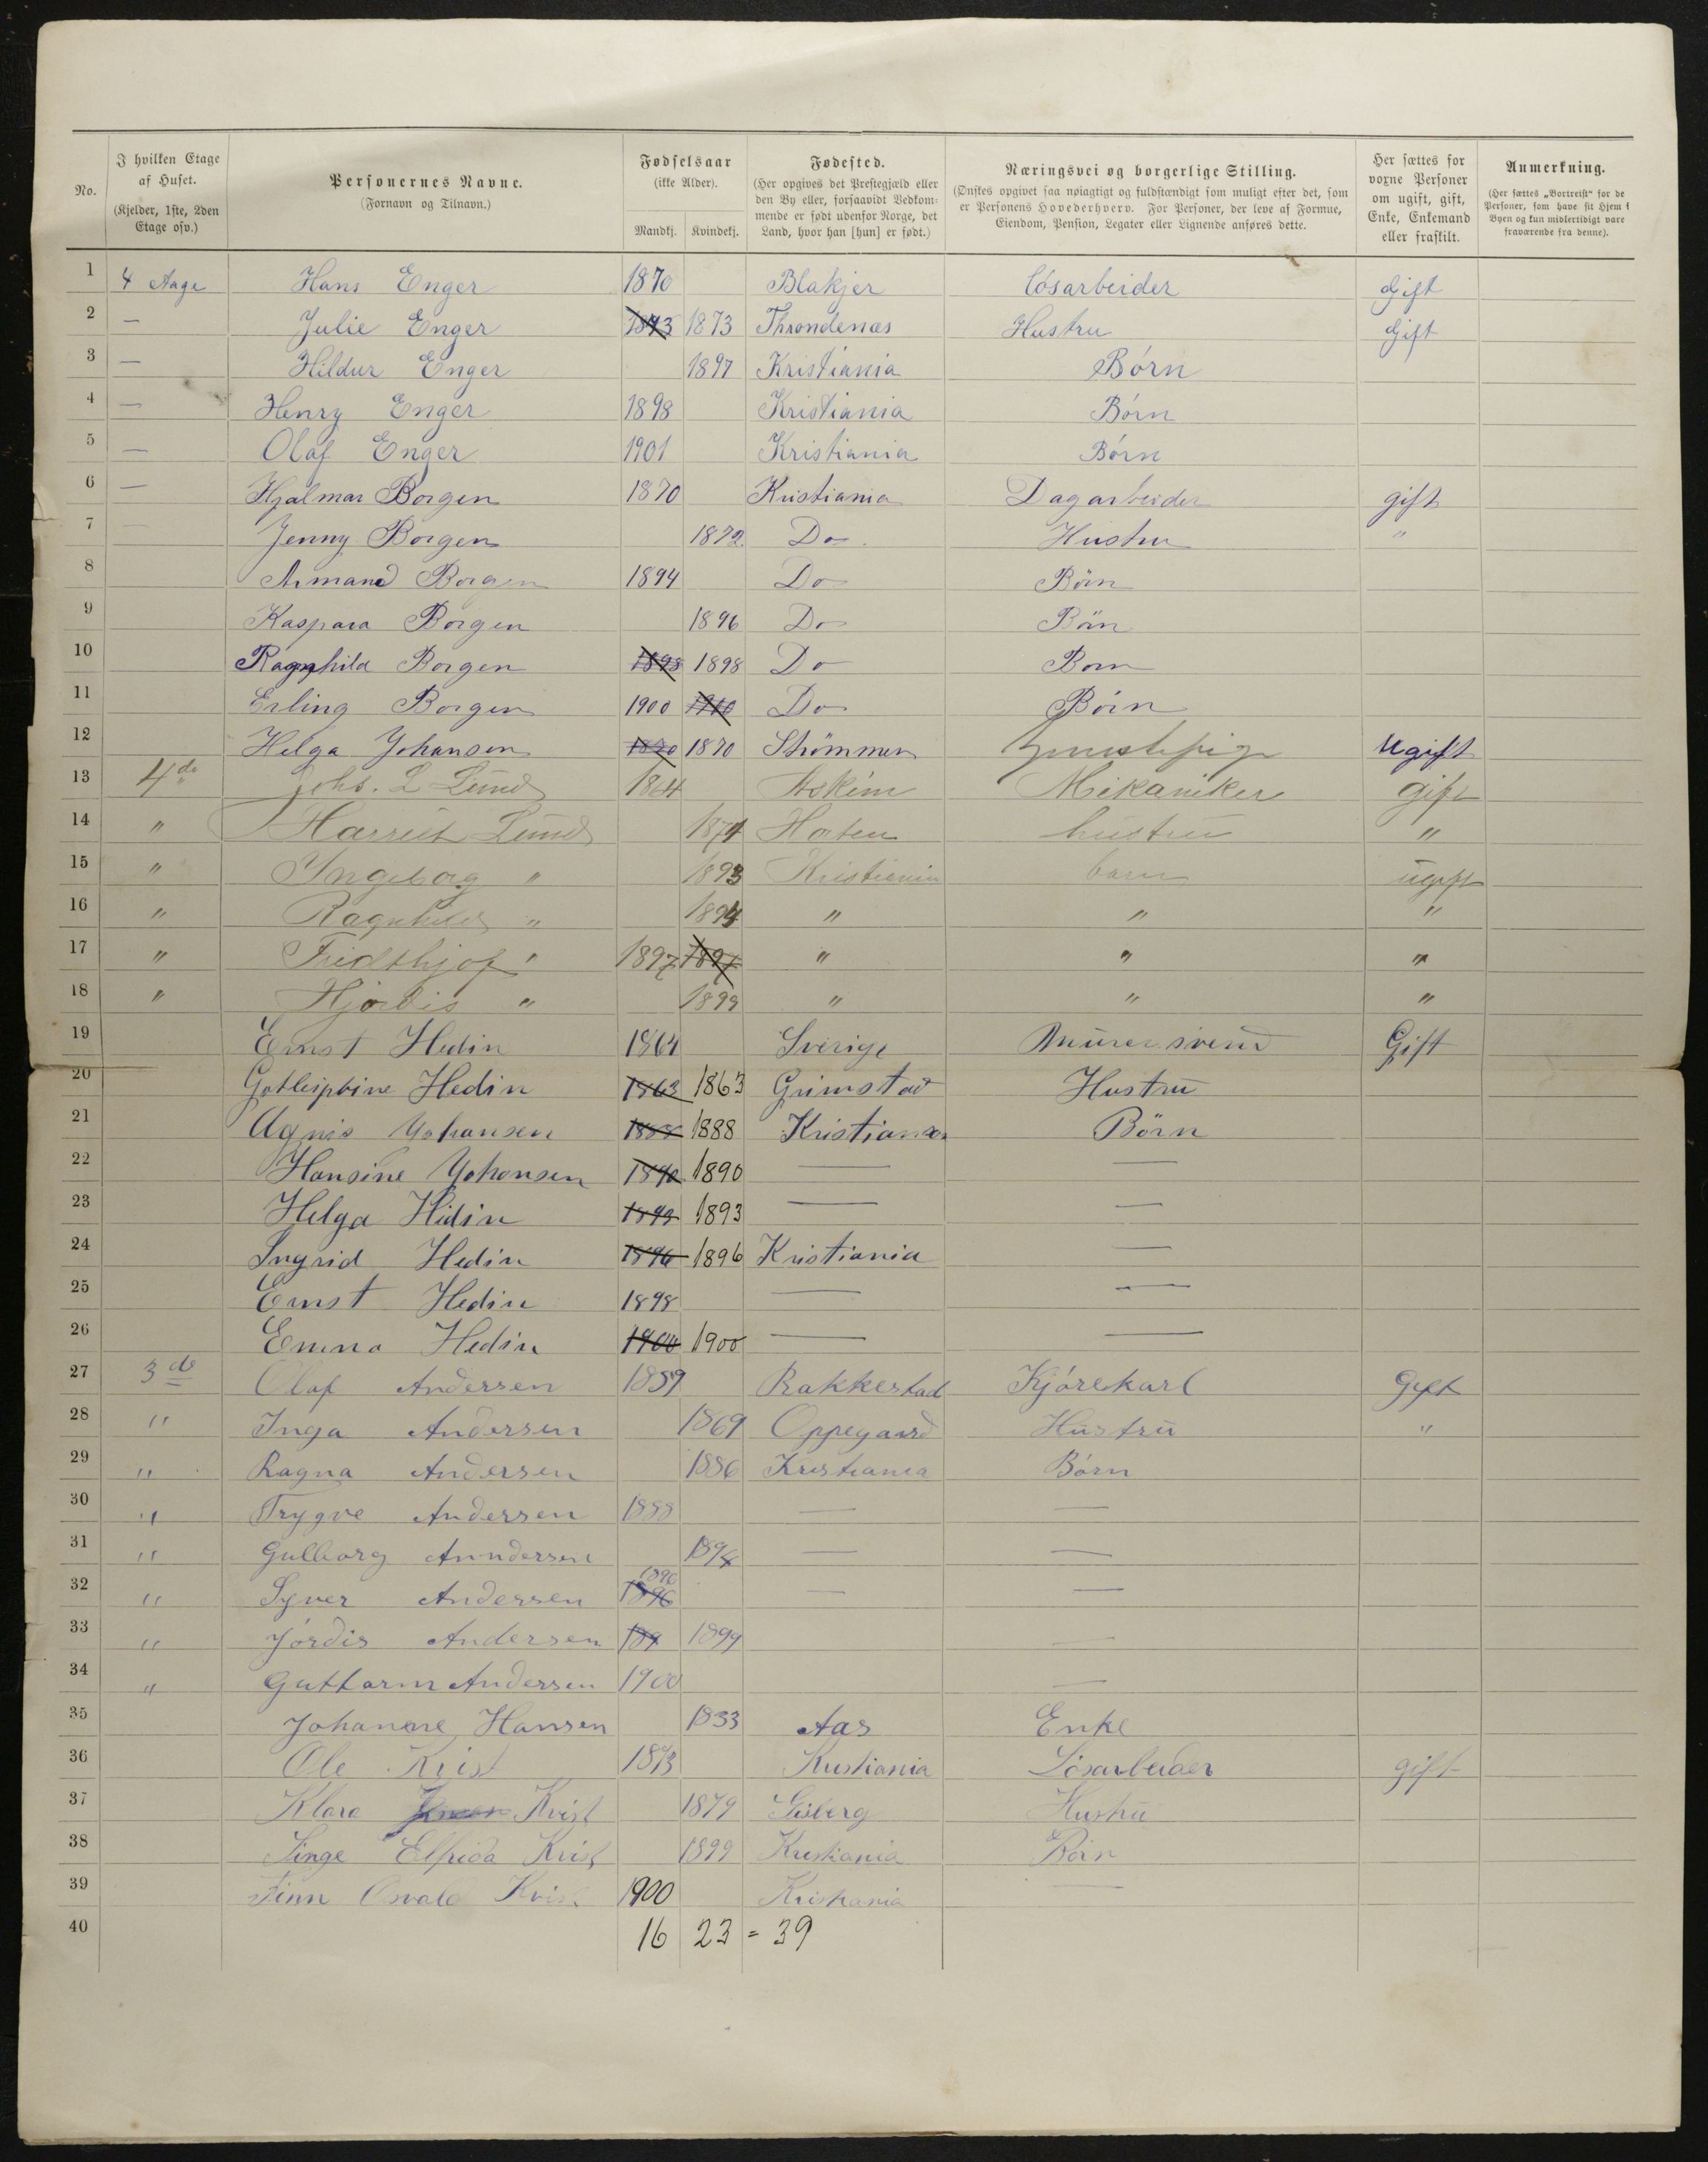 No. I hvilken Etage af Huset. (Kjelder, 1ste, 2den Etage osv.) Personernes Navne. (Fornavn og Tilnavn.) Fødselsaar (ikke Alder). Mandkj. Kvindekj. Fødested. (Her opgives det Prestegjæld eller den By eller, forsaavidt Vedkommende er født udenfor Norge, det Land, hvor han [hun] er født.) Næringsvei og borgerlige Stilling. (Ønskes opgivet saa nøiagtigt og fuldstændigt som muligt efter det, som er Personens Hovederhverv. For Personer, der leve af Formue, Eiendom, Pension, Legater eller Lignende anføres dette. Her sættes for voxne Personer om ugift, gift, Enke, Enkemand eller fraskilt. Anmerkning. (Her sættes „Bortreist“ for de Personer, som have sit Hjem i Byen og kun midlertidigt vare fraværende fra denne).
1 4 Aage Hans Enger 1870 Blakjer Løsarbeider Gift
2 — Julie Enger 1873 1873 Throndenæs Hustru Gift
3 — Hildur Enger 1897 Kristiania Børn
4 — Henry Enger 1898 Kristiania Børn
5 — Olaf Enger 1901 Kristiania Børn
6 — Hjalmar Borgen 1870 Kristiania Dagarbeider gift
7 — Jenny Borgen 1872. Do. Hustru "
8 Armand Borgen 1894 Do Børn
9 Kaspara Borgen 1896 Do Børn
10 Ragnhild Borgen 1898 1898 Do Børn
11 Erling Borgen 1900 1900 Do Børn
12 Helga Johansen 1870 1870 Strømmen Ugift
13 4de Johs. L Lund 1864 Askim Mekaniker gift
14 " Harriet Lund 1874 hustru "
15 " Ingeborg " 1893 Kristiania barn ugift
16 " Ragnhild " 1894 " " "
17 " Fridthjof " 1897 1897 " " "
18 " Hjørdis " 1899 " " "
19 Ernst Hedin 1864 Sverige Murersvend Gift
20 Hedin 1863 1863 Grimstad Hustru
21 Agnis Johansen 1888 1888 Børn
22 Hansine Johansen 1890 1890 — —
23 Helga Hedin 1893 1893 — —
24 Ingrid Hedin 1896 1896 Kristiania —
25 Ernst Hedin 1898 — —
26 Emma Hedin 1900 1900 — —
27 3de Olaf Andersen 1859 Rakkestad Kjørekarl Gift
28 " Inga Andersen 1869 Oppegaard Hustru "
29 " Ragna Andersen 1886 Kristiania Børn
30 " Trygve Andersen 1888 — —
31 " Gulborg Anndersen — —
32 " Syver Andersen 1896 1896 — —
33 " Jórdis Andersen 189 1899 —
34 " Guttorm Andersen 1900 —
35 Johanne Hansen 1833 Aas Enke
36 Ole Krist 1873 Kristiania Løsarbeider gift
37 Klara Krist 1879 Hustru
38 Singe Elfrida Krist 1899 Kristiania Børn
39 Finn Osvald Krist 1900 Kristiania —
40 16 23 = 39